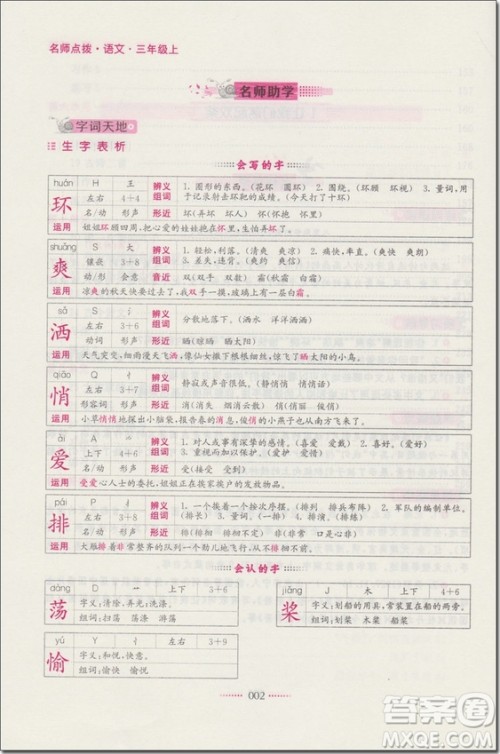 名师点拨·语文·三年级上
名师助学
字词天地
生字表析
会写的字
huán H 王 辨义组词 1. 圆形的东西。(花环 圆环) 2. 围绕。(环顾 环城) 3. 量词，用于记录射击、射箭比赛的成绩。(今天打了十环)
环 左右 4+4
名/动 形声 形近 环(弄环 环人) 怀(怀里 怀抱)
运用 姐姐环顾四周，把心爱的娃娃抱在怀里，生怕被人弄坏。
shuǎng S 大 辨义组词 1. 轻松，利落。(清爽 爽凉) 2. 痛快，率直。(爽快 爽朗) 3. 差失，违背。(爽约 爽信)
爽 镶嵌 3+8
动/形 会意 音近 双(双手 双方) 霜(秋霜 白霜)
运用 凉爽的秋天快要过去了，我双手一摸，玻璃上有一层白霜。
sǎ S 氵 辨义组词 分散地落下。(洒水 洋洋洒洒)
洒 左右 3+6
动词 形声 形近 晒(晾晒 晒太阳)
运用 天气突变，细雨漫天飞洒，像仙女撒下根根细丝，惊飞了晒太阳的小鸟。
qiāo Q 忄 辨义组词 静寂或声音很低。(静悄悄 悄悄话)
悄 左右 3+7
形容词 形声 形近 消(消失 消息) 俏(俏丽 俊俏)
运用 小草悄悄地探出小脑袋，报告春的消息，俏丽的小燕子也从南方飞来了。
ài A 爫 辨义组词 1. 对人或事有深挚的感情。(喜爱 爱戴) 2. 喜好。(爱好 喜爱) 3. 爱惜，爱护。(爱护 爱惜)
爱 上下 4+6
名/动 形声 形近 受(接受 受到)
运用 受爱心人士的委托，姐姐正在挨家挨户的发放物品。
pái P 扌 辨义组词 1. 一个挨一个按次序摆。(排列 排队) 2. 军队的编制单位。(排长) 3. 量词。(一排排) 4. 除去，推开。(排斥 排除)
排 左右 3+8
名/动 形声 形近 徘(徘徊) 非(非常 口是心非)
运用 大雁排着非常整齐的队列一个劲儿地飞行，从不徘徊不前。
会认的字
dàng D 艹 上下 3+6
荡 字义：清除，弄光；洗涤。
组词：扫荡 荡涤 游荡
jiǎng J 木 上下 4+6
桨 字义：划船的用具，常装置在船的两旁。
组词：划桨 木桨 船桨
yú Y 忄 左右 3+9
愉 字义：和悦，快意。
组词：愉快 愉悦
002
答案圈
MXQE.COM